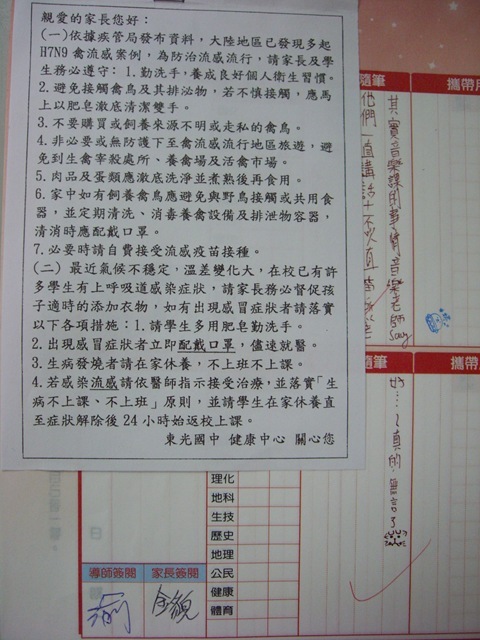 親愛的家長您好：
(一)依據疾管局發布資料，大陸地區已發現多起
H7N9 禽流感案例，為防治流感流行，請家長及學
生務必遵守：1.勤洗手，養成良好個人衛生習慣。
2.避免接觸禽鳥及其排泌物，若不慎接觸，應馬
上以肥皂澈底清潔雙手。
3.不要購買或飼養來源不明或走私的禽鳥。
4.非必要或無防護下至禽流感流行地區旅遊，避
免到生禽宰殺處所、養禽場及活禽市場。
5.肉品及蛋類應澈底洗淨並煮熟後再食用。
6.家中如有飼養禽鳥應避免與野鳥接觸或共用食
器，並定期清洗、消毒養禽設備及排泄物容器，
清消時應配戴口罩。
7.必要時請自費接受流感疫苗接種。
(二) 最近氣候不穩定，溫差變化大，在校已有許
多學生有上呼吸道感染症狀，請家長務必督促孩
子適時的添加衣物，如有出現感冒症狀者請落實
以下各項措施：1.請學生多用肥皂勤洗手。
2.出現感冒症狀者立即配戴口罩，儘速就醫。
3.生病發燒者請在家休養，不上班不上課。
4.若感染流感請依醫師指示接受治療，並落實「生
病不上課、不上班」原則，並請學生在家休養直
至症狀解除後 24 小時始返校上課。
東光國中 健康中心 關心您
隨筆
攜帶用
其實音樂課的事情，音樂老師
Song
他們一直講話
隨筆
攜帶用
好…～真的無言了
理化
地科
生技
歷史
地理
公民
健康
體育
導師簽閱
家長簽閱